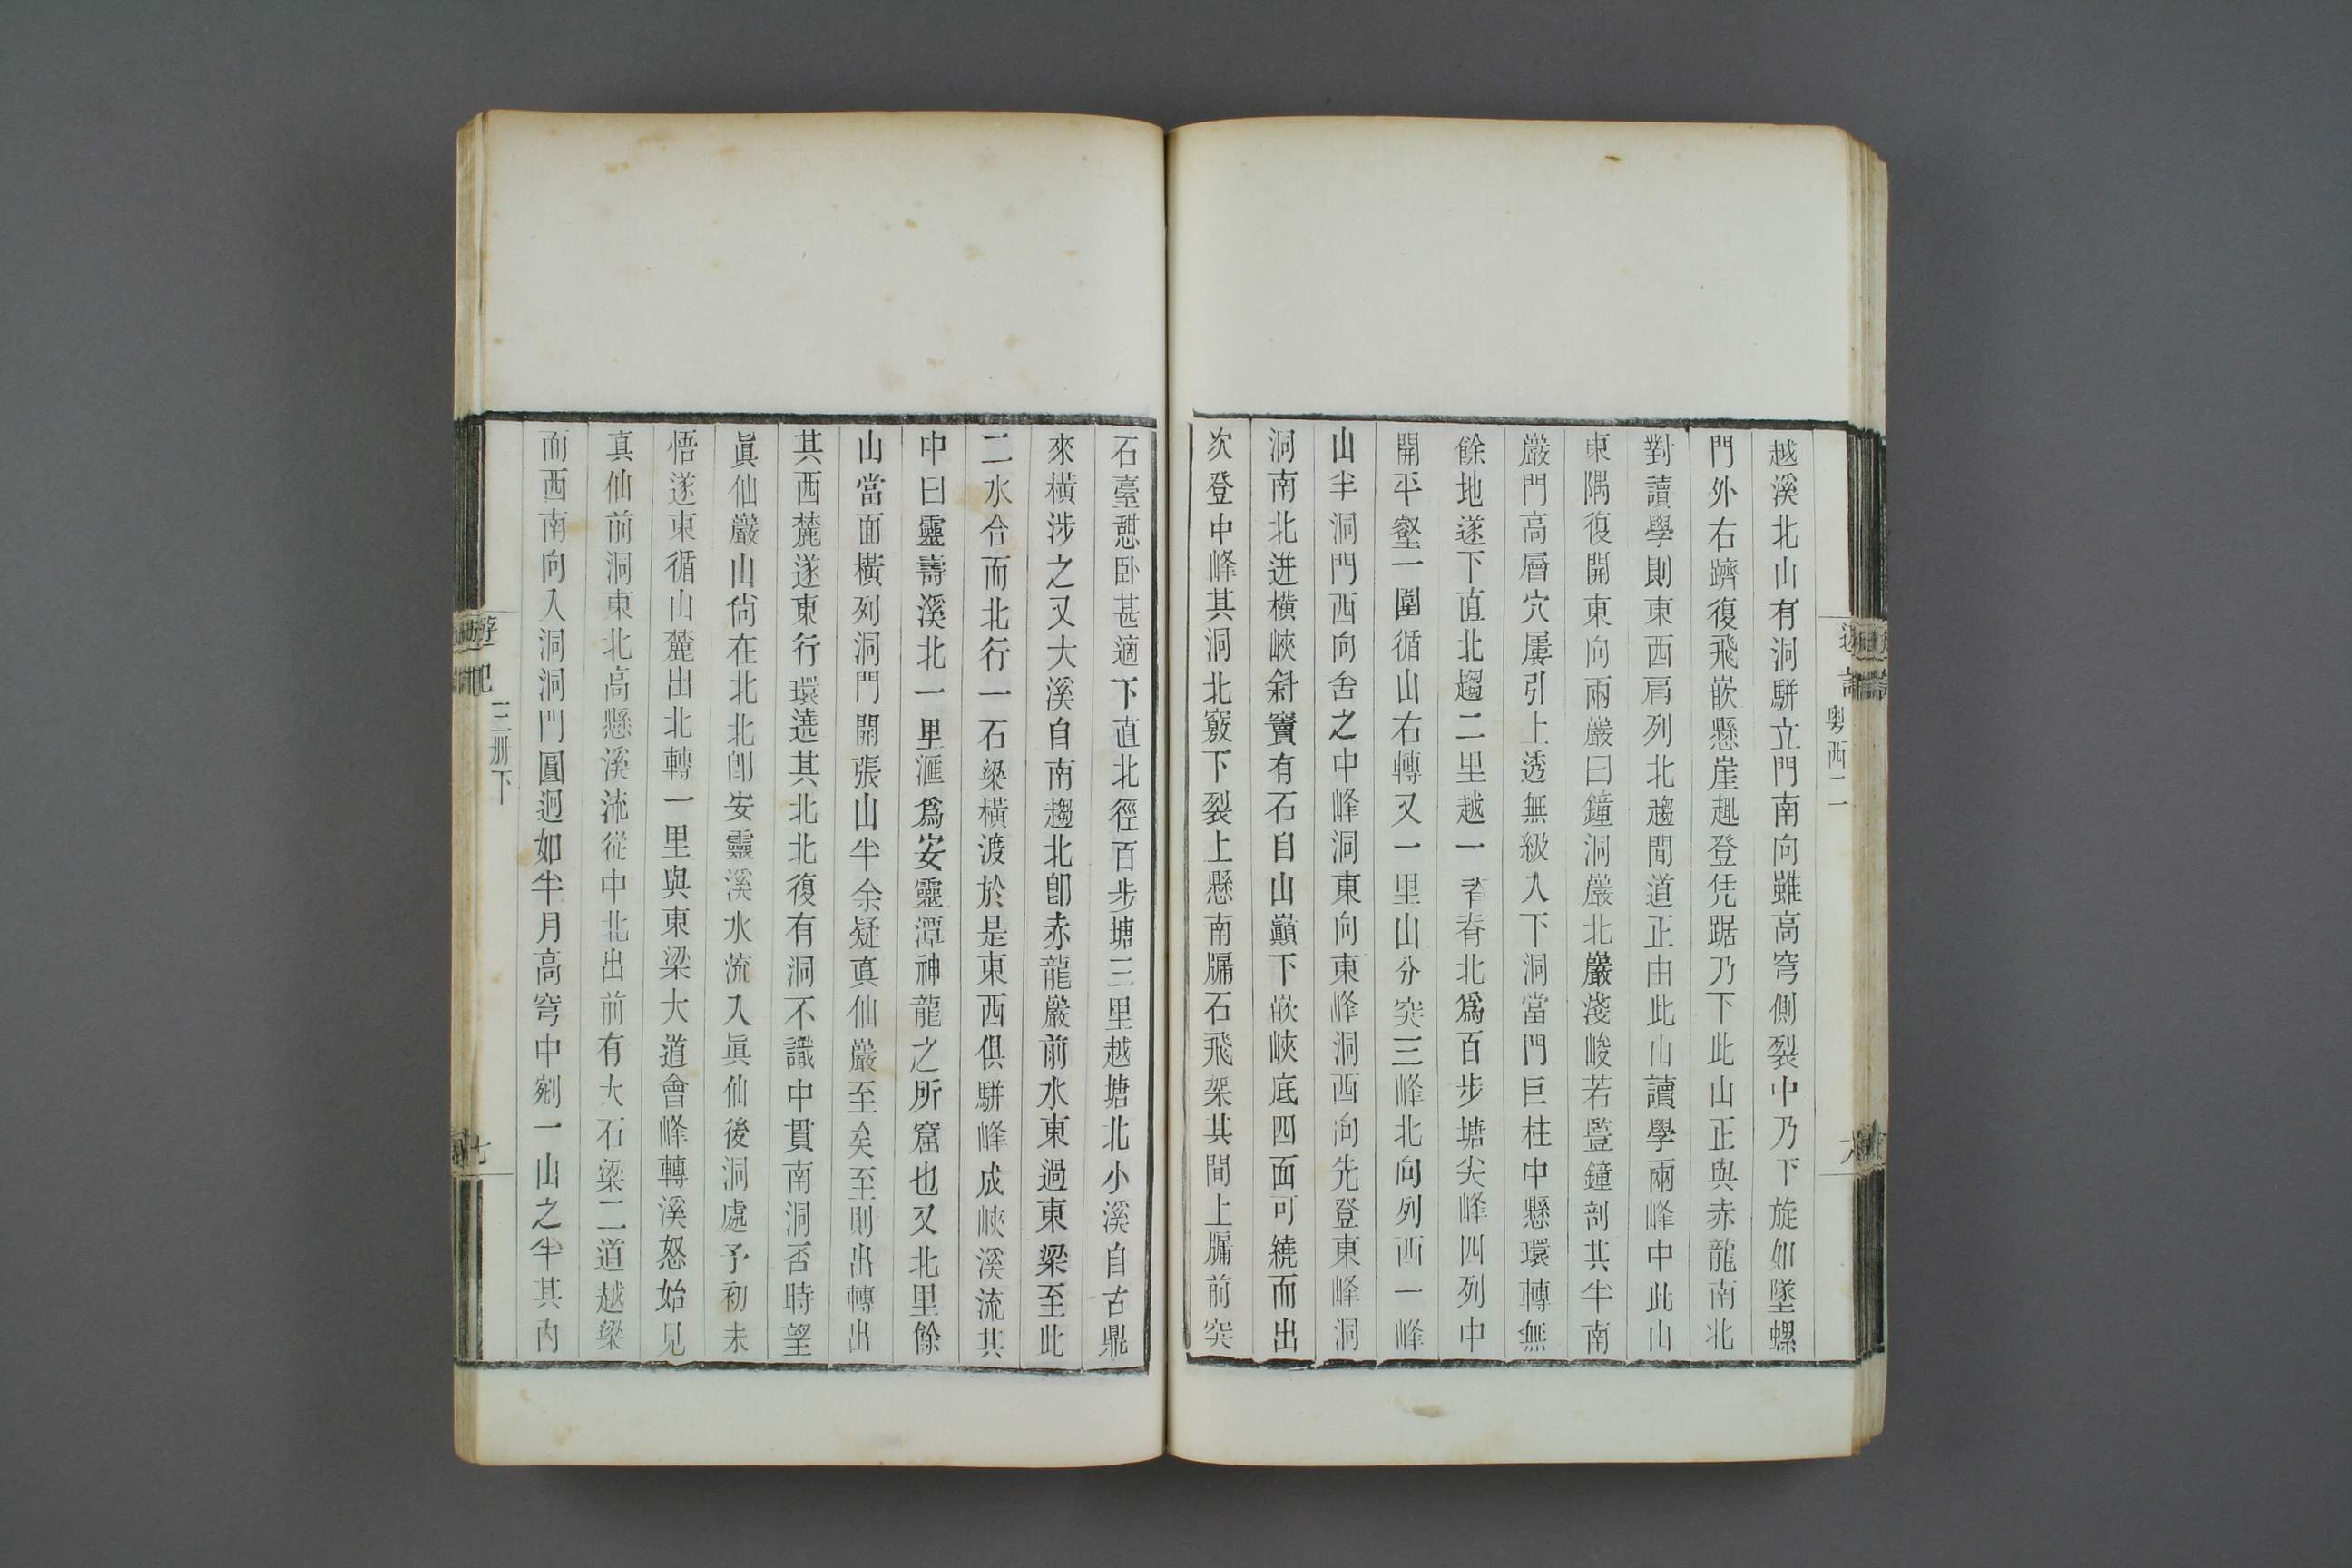 越溪北山有洞駢立門南向雖高穹側裂中乃下旋如墜螺
門外右躋復飛嵌懸崖趣登凭踞乃下此山正與赤龍南北
對讀學則東西肩列北趨間道正由此山讀學兩峰中此山
東隅復開東向兩巖曰鐘洞巖北巖淺峻若豎鐘剖其半南
巖門高層穴屢引上透無級入下洞當門巨柱中懸環轉無
餘地遂下直北趨二里越一脊脊北爲百步塘尖峰四列中
開平壑一圍循山右轉又一里山分突三峰北向列西一峰
山半洞門西向舍之中峰洞東向東峰洞西向先登東峰洞
洞南北迸橫峽斜竇有石自山巔下嵌峽底四面可繞而出
次登中峰其洞北竅下裂上懸南牖石飛架其間上牖前突
石臺憇臥甚適下直北徑百步塘三里越塘北小溪自古鼎
來橫涉之又大溪自南趨北卽赤龍巖前水東過東梁至此
二水合而北行一石梁橫渡於是東西俱駢峰成峽溪流其
中曰靈壽溪北一里滙爲安靈潭神龍之所窟也又北里餘
山當面橫列洞門開張山半余疑真仙巖至矣至則出轉出
其西麓遂東行環遶其北北復有洞不識中貫南洞否時望
眞仙巖山尙在北北卽安靈溪水流入眞仙後洞處予初未
悟遂東循山麓出北轉一里與東梁大道會峰轉溪怒始見
真仙前洞東北高懸溪流從中北出前有大石梁二道越梁
而西南向入洞洞門圓迥如半月高穹中剜一山之半其內
遊記
三册下
七
粤西二